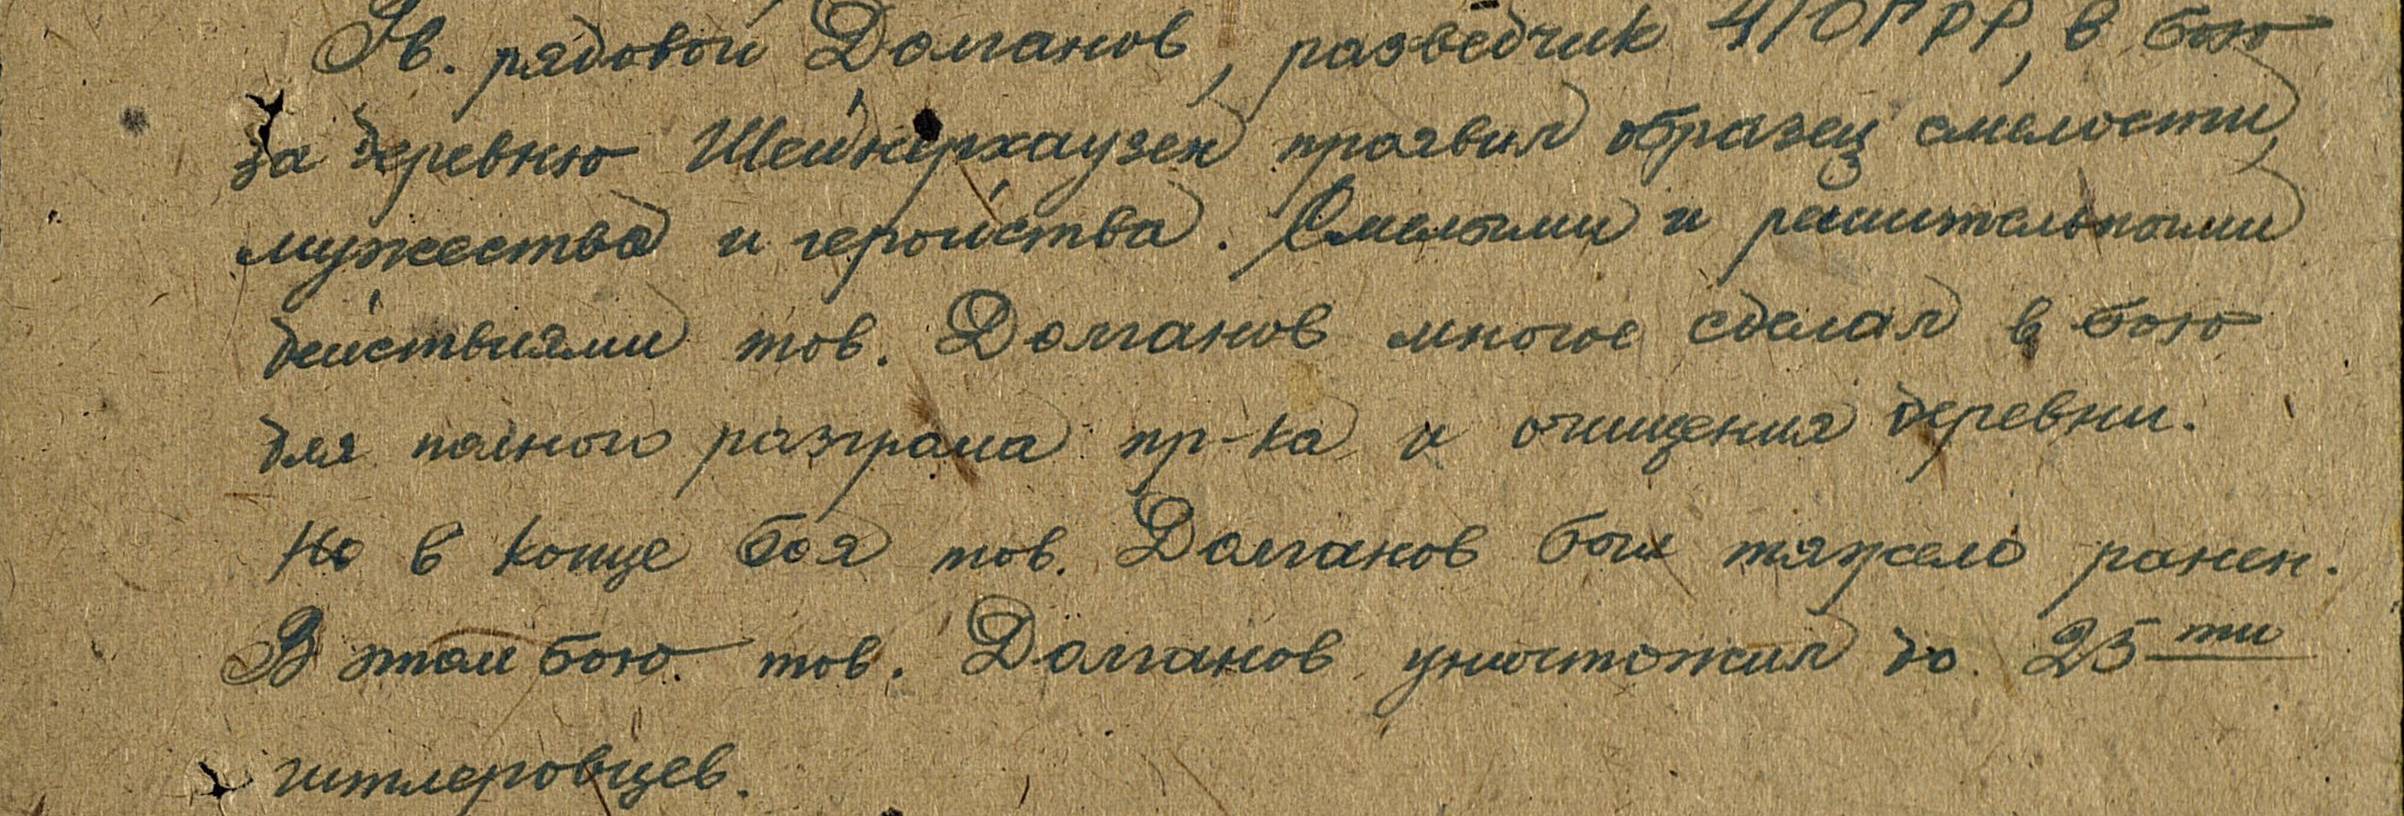 Гв. рядовой Долганов, разведчик 4/ОГРР, в бою
за деревню Шейнерхаузен проявил образец смелости,
мужества и геройства. Смелыми и решительными
действиями тов. Долганов многое сделал в бою
для полного разграма пр-ка и очищения деревни.
Но в конце боя тов. Долганов был тяжело ранен.
В этом бою тов. Долганов уничтожил до 25ти
гитлеровцев.